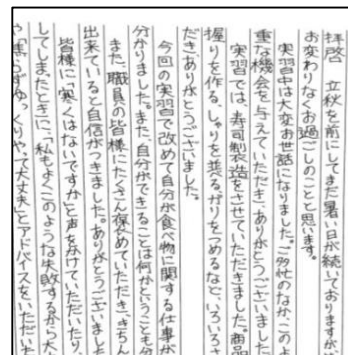 拝啓 立秋を前にしてまだ暑い日が続いておりますが皆
お変わりなくお過ごしのことと思います。
実習中は大変お世話になりました。ご多忙のなか、この
重な機会を与えていただき、ありがとうございました
実習では、寿司製造をさせていただきました。商習
握りを作る、しゃりを並べる、ガリをつめるなど、いろいろ
だき、ありがとうございました。
今回の実習で改めて自分が食べ物に関する仕事が
分かりました。また、自分ができることは何かということも分
また、職員の皆様にたくさん褒めていただき、きちん
出来ていると自信がつきました。ありがとうございました
皆様に「寒くはないですか」と声をかけていただいたり、
してしまったときに、「私もよくこのような失敗するから大
や「焦らずゆっくりやって大丈夫」とアドバイスをいただいた